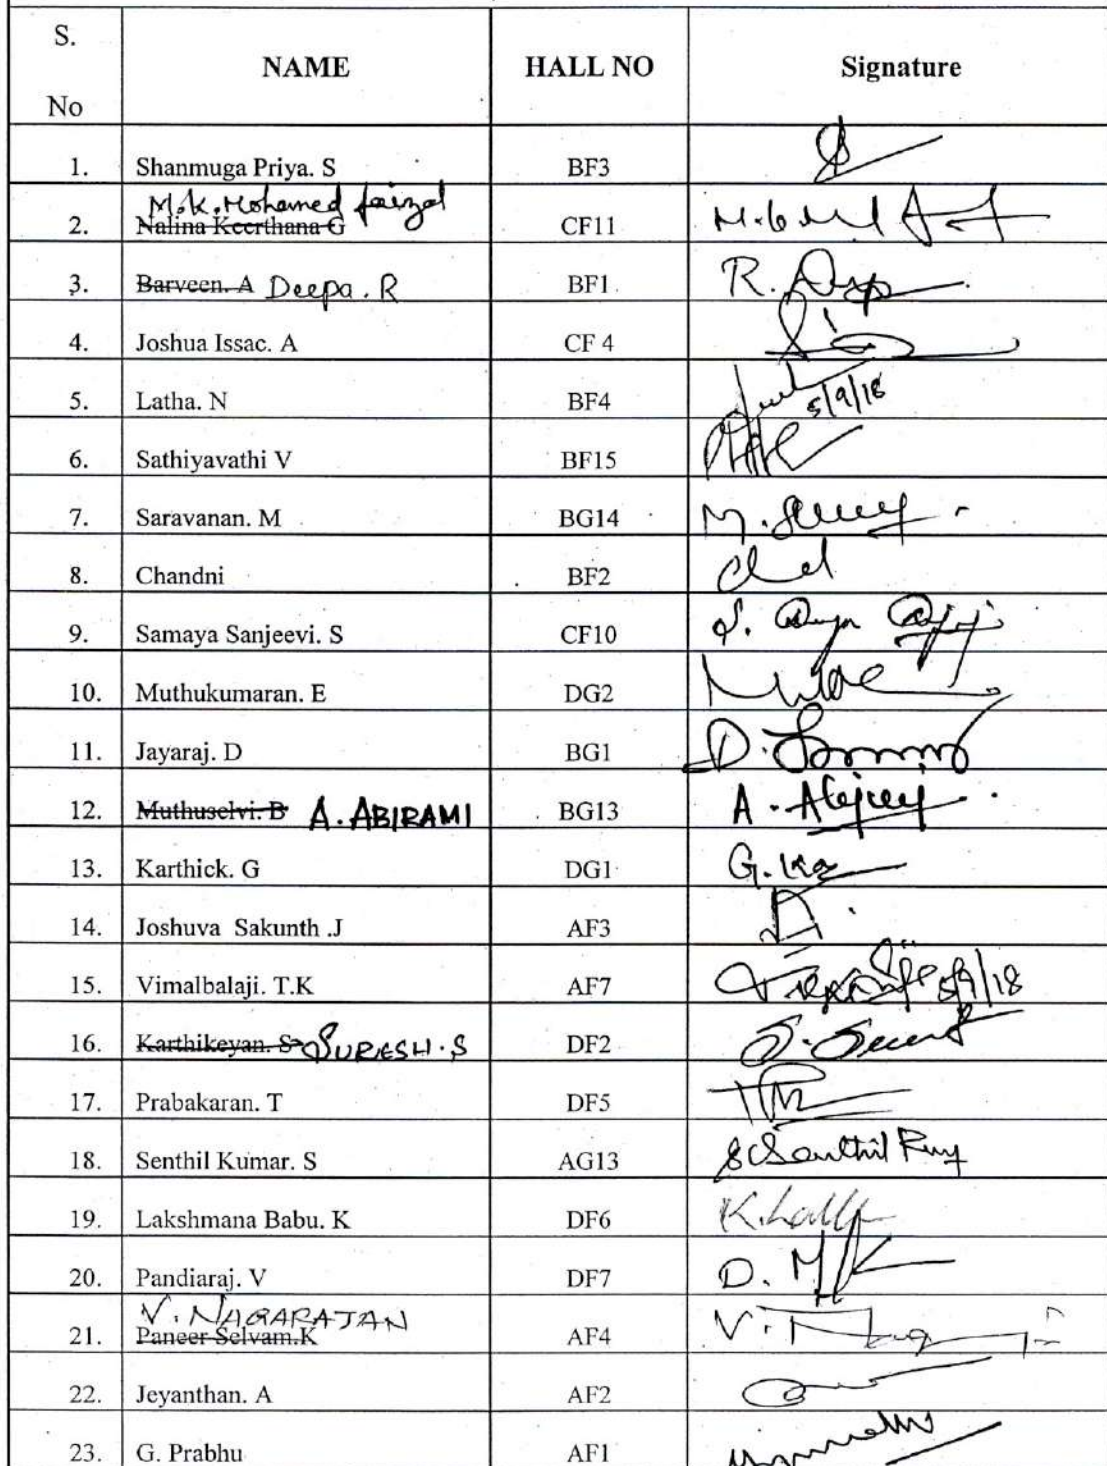 S. No NAME HALL NO Signature
1. Shanmuga Priya. S BF3
M.K. Mohamed faizal
2. Nalina Keerthana G CF11
3. Barveen. A Deepa. R BF1 R.
4. Joshua Issac. A CF 4
5. Latha. N BF4 5/9/18
6. Sathiyavathi V BF15
7. Saravanan. M BG14 M.
8. Chandni BF2
9. Samaya Sanjeevi. S CF10
10. Muthukumaran. E DG2
11. Jayaraj. D BG1 D.
12. Muthuselvi. B A. ABIRAMI BG13 A.
13. Karthick. G DG1 G.
14. Joshuva Sakunth .J AF3
15. Vimalbalaji. T.K AF7 5/9/18
16. Karthikeyan. S SURESH.S DF2 S.
17. Prabakaran. T DF5
18. Senthil Kumar. S AG13 Senthil
19. Lakshmana Babu. K DF6 K.
20. Pandiaraj. V DF7 D.
V. NAGARAJAN
21. Paneer Selvam.K AF4 V.
22. Jeyanthan. A AF2
23. G. Prabhu AF1